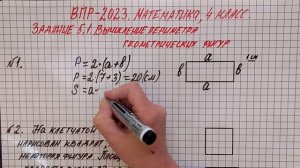 ВПР-2023. МАТЕМАТИКА, 4 КЛАСС
ЗАДАНИЕ 5.1. ВЫЧИСЛЕНИЕ ПЕРИМЕТРА
ГЕОМЕТРИЧЕСКИХ ФИГУР
№1.
P = 2·(a+b)
P = 2·(7+3) = 20 (см)
S = a·
a
b
b
a
1 см
№2. НА КЛЕТЧАТОЙ
НАРИСОВАН КВАДРАТ,
НЕКОТОРАЯ ФИГУРА.